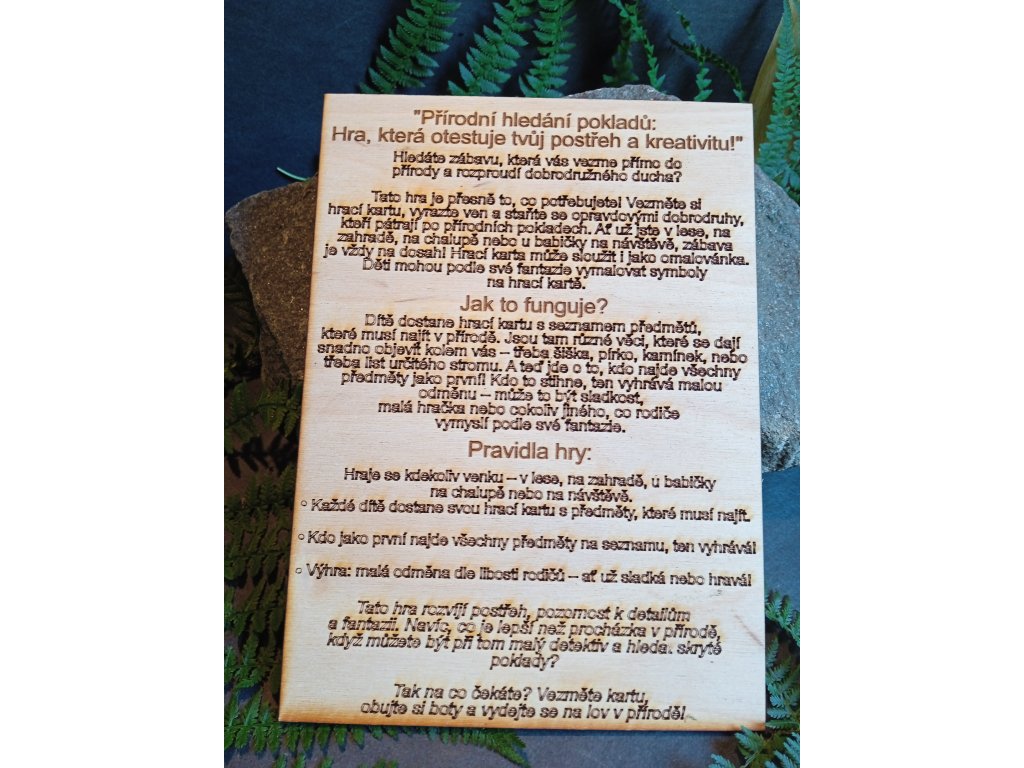 "Přírodní hledání pokladů:
Hra, která otestuje tvůj postřeh a kreativitu!"
Hledáte zábavu, která vás vezme přímo do
přírody a rozproudí dobrodružného ducha?
Tato hra je přesně to, co potřebujete! Vezměte si
hrací kartu, vyrazte ven a staňte se opravdovými dobrodruhy,
kteří pátrají po přírodních pokladech. Ať už jste v lese, na
zahradě, na chalupě nebo u babičky na návštěvě, zábava
je vždy na dosah! Hrací karta může sloužit i jako omalovánka.
Děti mohou podle své fantazie vymalovat symboly
na hrací kartě.
Jak to funguje?
Dítě dostane hrací kartu s seznamem předmětů,
které musí najít v přírodě. Jsou tam různé věci, které se dají
snadno objevit kolem vás – třeba šiška, pírko, kamínek, nebo
třeba list určitého stromu. A teď jde o to, kdo najde všechny
předměty jako první! Kdo to stihne, ten vyhrává malou
odměnu – může to být sladkost,
malá hračka nebo cokoliv jiného, co rodiče
vymyslí podle své fantazie.
Pravidla hry:
Hraje se kdekoliv venku – v lese, na zahradě, u babičky
na chalupě nebo na návštěvě.
○ Každé dítě dostane svou hrací kartu s předměty, které musí najít.
○ Kdo jako první najde všechny předměty na seznamu, ten vyhrává!
○ Výhra: malá odměna dle libosti rodičů – ať už sladká nebo hravá!
Tato hra rozvíjí postřeh, pozornost k detailům
a fantazii. Navíc, co je lepší než procházka v přírodě,
když můžete být při tom malý detektiv a hledat skryté
poklady?
Tak na co čekáte? Vezměte kartu,
obujte si boty a vydejte se na lov v přírodě!